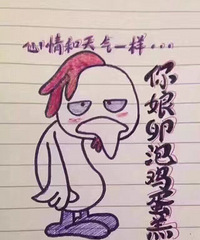 心情和天气一样...
你娘卵泡鸡蛋羔